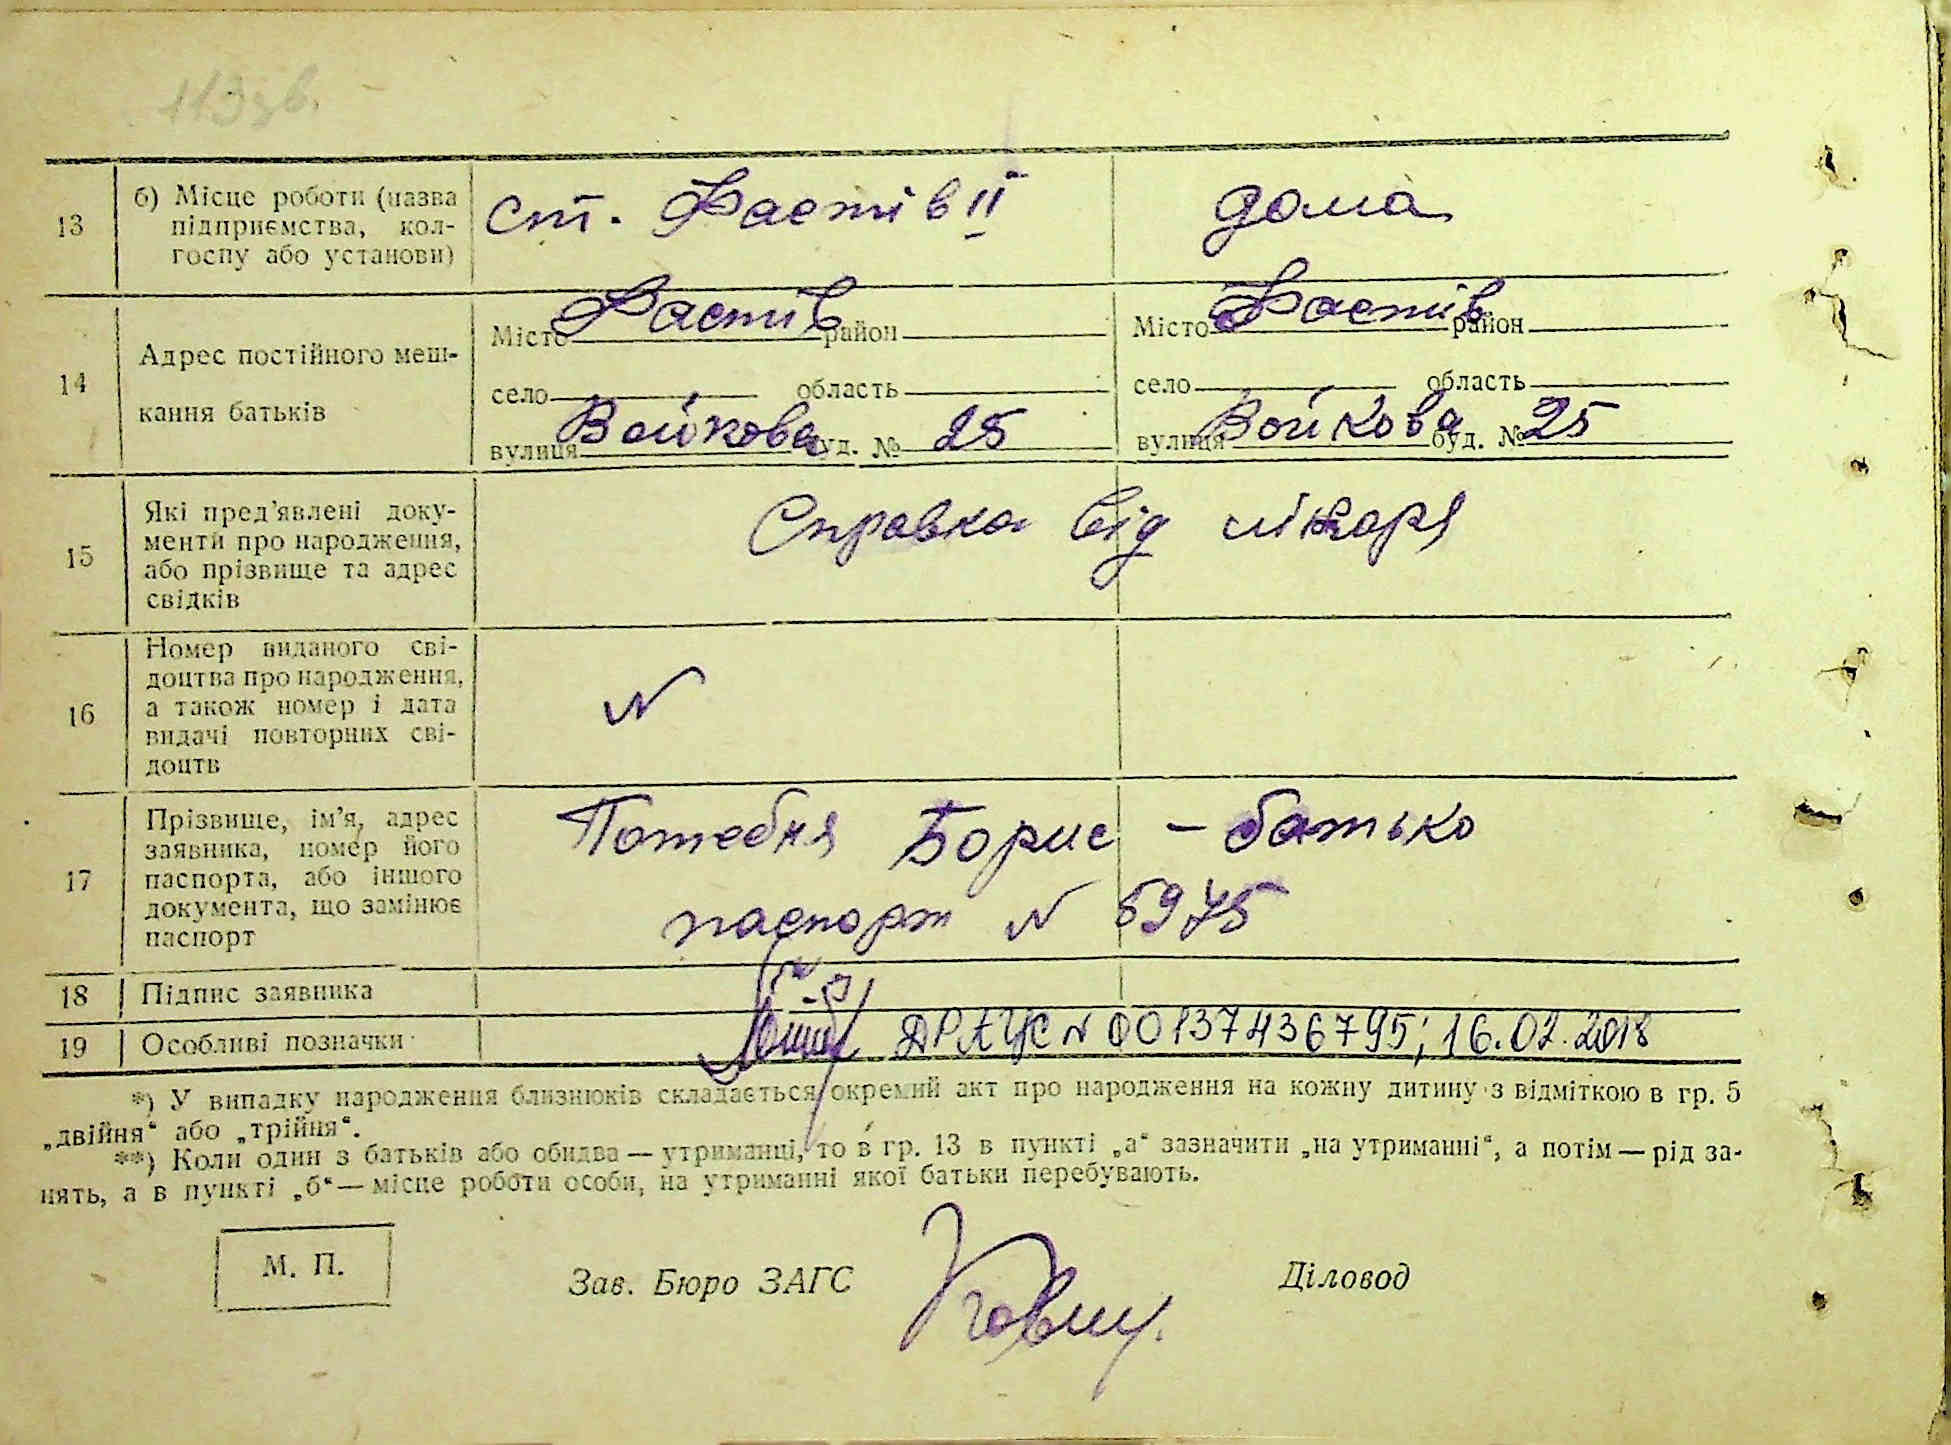 113 зв.
13 б) Місце роботи (назва ст. Фастів II дома
підприємства, кол-
госпу або установи)
14 Адрес постійного меш-
кання батьків
Місто Фастів район Місто Фастів район
село область село область
вулиця Войкова буд. № 25 вулиця Войкова буд. № 25
15 Які пред'явлені доку- Справка від лікаря
менти про народження,
або прізвище та адрес
свідків
16 Номер виданого сві- N
доцтва про народження,
а також номер і дата
видачі повторних сві-
доцтв
17 Прізвище, ім'я, адрес Потебня Борис – батько
заявника, номер його
паспорта, або іншого паспорт N 5975
документа, що замінює
паспорт
18 Підпис заявника
19 Особливі позначки ДРАЦС N 00137436795; 16.02.2018
*) У випадку народження близнюків складається окремий акт про народження на кожну дитину з відміткою в гр. 5
„двійня“ або „трійня“.
**) Коли один з батьків або обидва — утриманці, то в гр. 13 в пункті „а“ зазначити „на утриманні“, а потім — рід за-
нять, а в пункті „б“ — місце роботи особи, на утриманні якої батьки перебувають.
М. П. Зав. Бюро ЗАГС Діловод